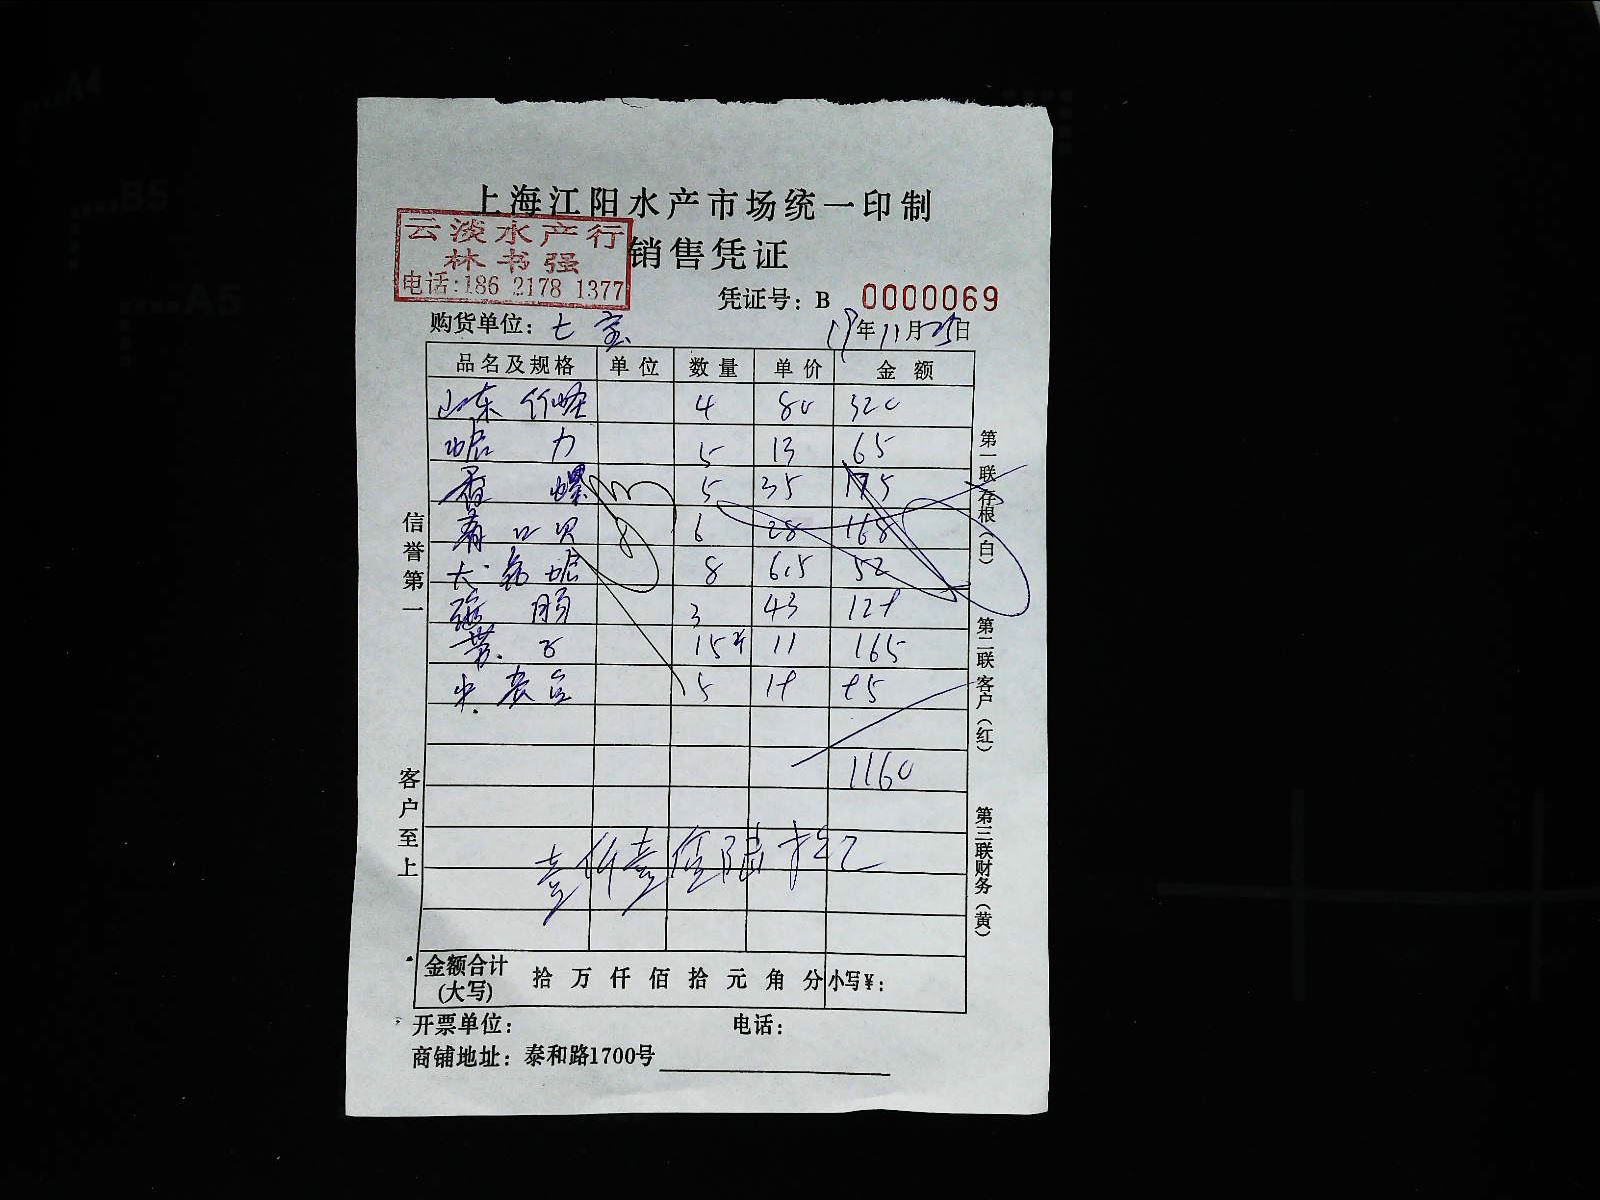 上海江阳水产市场统一印制
云淡水产行
林书强
电话:186 2178 1377
销售凭证
凭证号: B 0000069
购货单位: 七宝
19年11月25日
品名及规格 单位 数量 单价 金额
山东竹蛏 4 80 320
蛤力 5 13 65
香螺 5 35 175
6 28 168
大 蛤 8 6.5 52
3 43 129
15 11 165
5 19 95
1160
壹仟壹佰陆拾元
金额合计(大写) 拾 万 仟 佰 拾 元 角 分 小写¥:
开票单位: 电话:
商铺地址: 泰和路1700号
信誉第一
客户至上
第一联存根(白)
第二联客户(红)
第三联财务(黄)